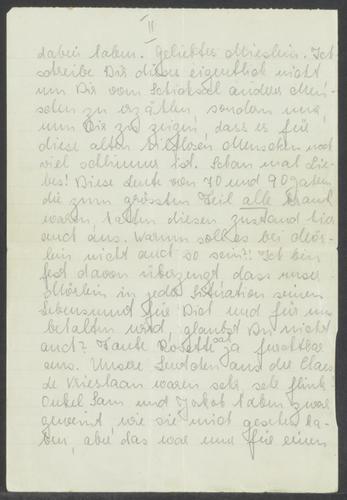 II
dabei haben. Geliebtes Mieslein. Ich
schreibe Dir dieses eigentlich nicht
um Dir vom Schicksal anderer Men-
schen zu erzählen, sondern nur,
um Dir zu zeigen, dass es für
diese alten hilflosen Menschen noch
viel schlimmer ist. Schau mal Lie-
bes! Diese Leute von 70 und 90 Jahren
die zum grössten Teil alle krank
waren, halten diesen Zustand hier
auch aus. Warum soll es bei
lein nicht auch so sein?! Ich bin
fest davon überzeugt dass unser
in jeder Situation seinen
Lebensmut für Dich und für uns
behalten wird, glaubst Du nicht
auch? Tante Rosette sah ja furchtbar
aus. Unsere aus der Claes
de Vrieslaan waren sehr, sehr flink!
Onkel Sam und Jakob haben zwar
geweint, wie sie mich gesehen ha-
ben, aber das war nur für einen